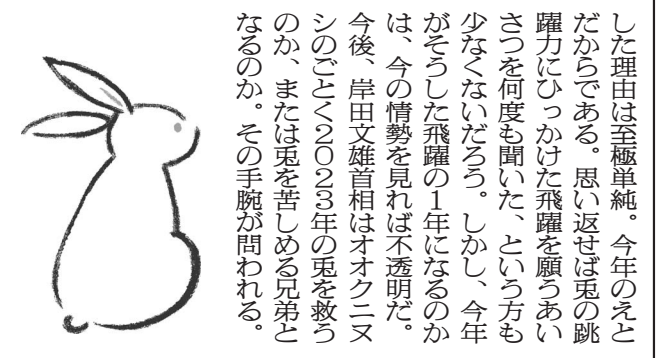 した理由は至極単純。今年のえと
だからである。思い返せば兎の跳
躍力にひっかけた飛躍を願うあい
さつを何度も聞いた、という方も
少なくないだろう。しかし、今年
がそうした飛躍の1年になるのか
は、今の情勢を見れば不透明だ。
今後、岸田文雄首相はオオクニヌ
シのごとく2023年の兎を救う
のか、または兎を苦しめる兄弟と
なるのか。その手腕が問われる。